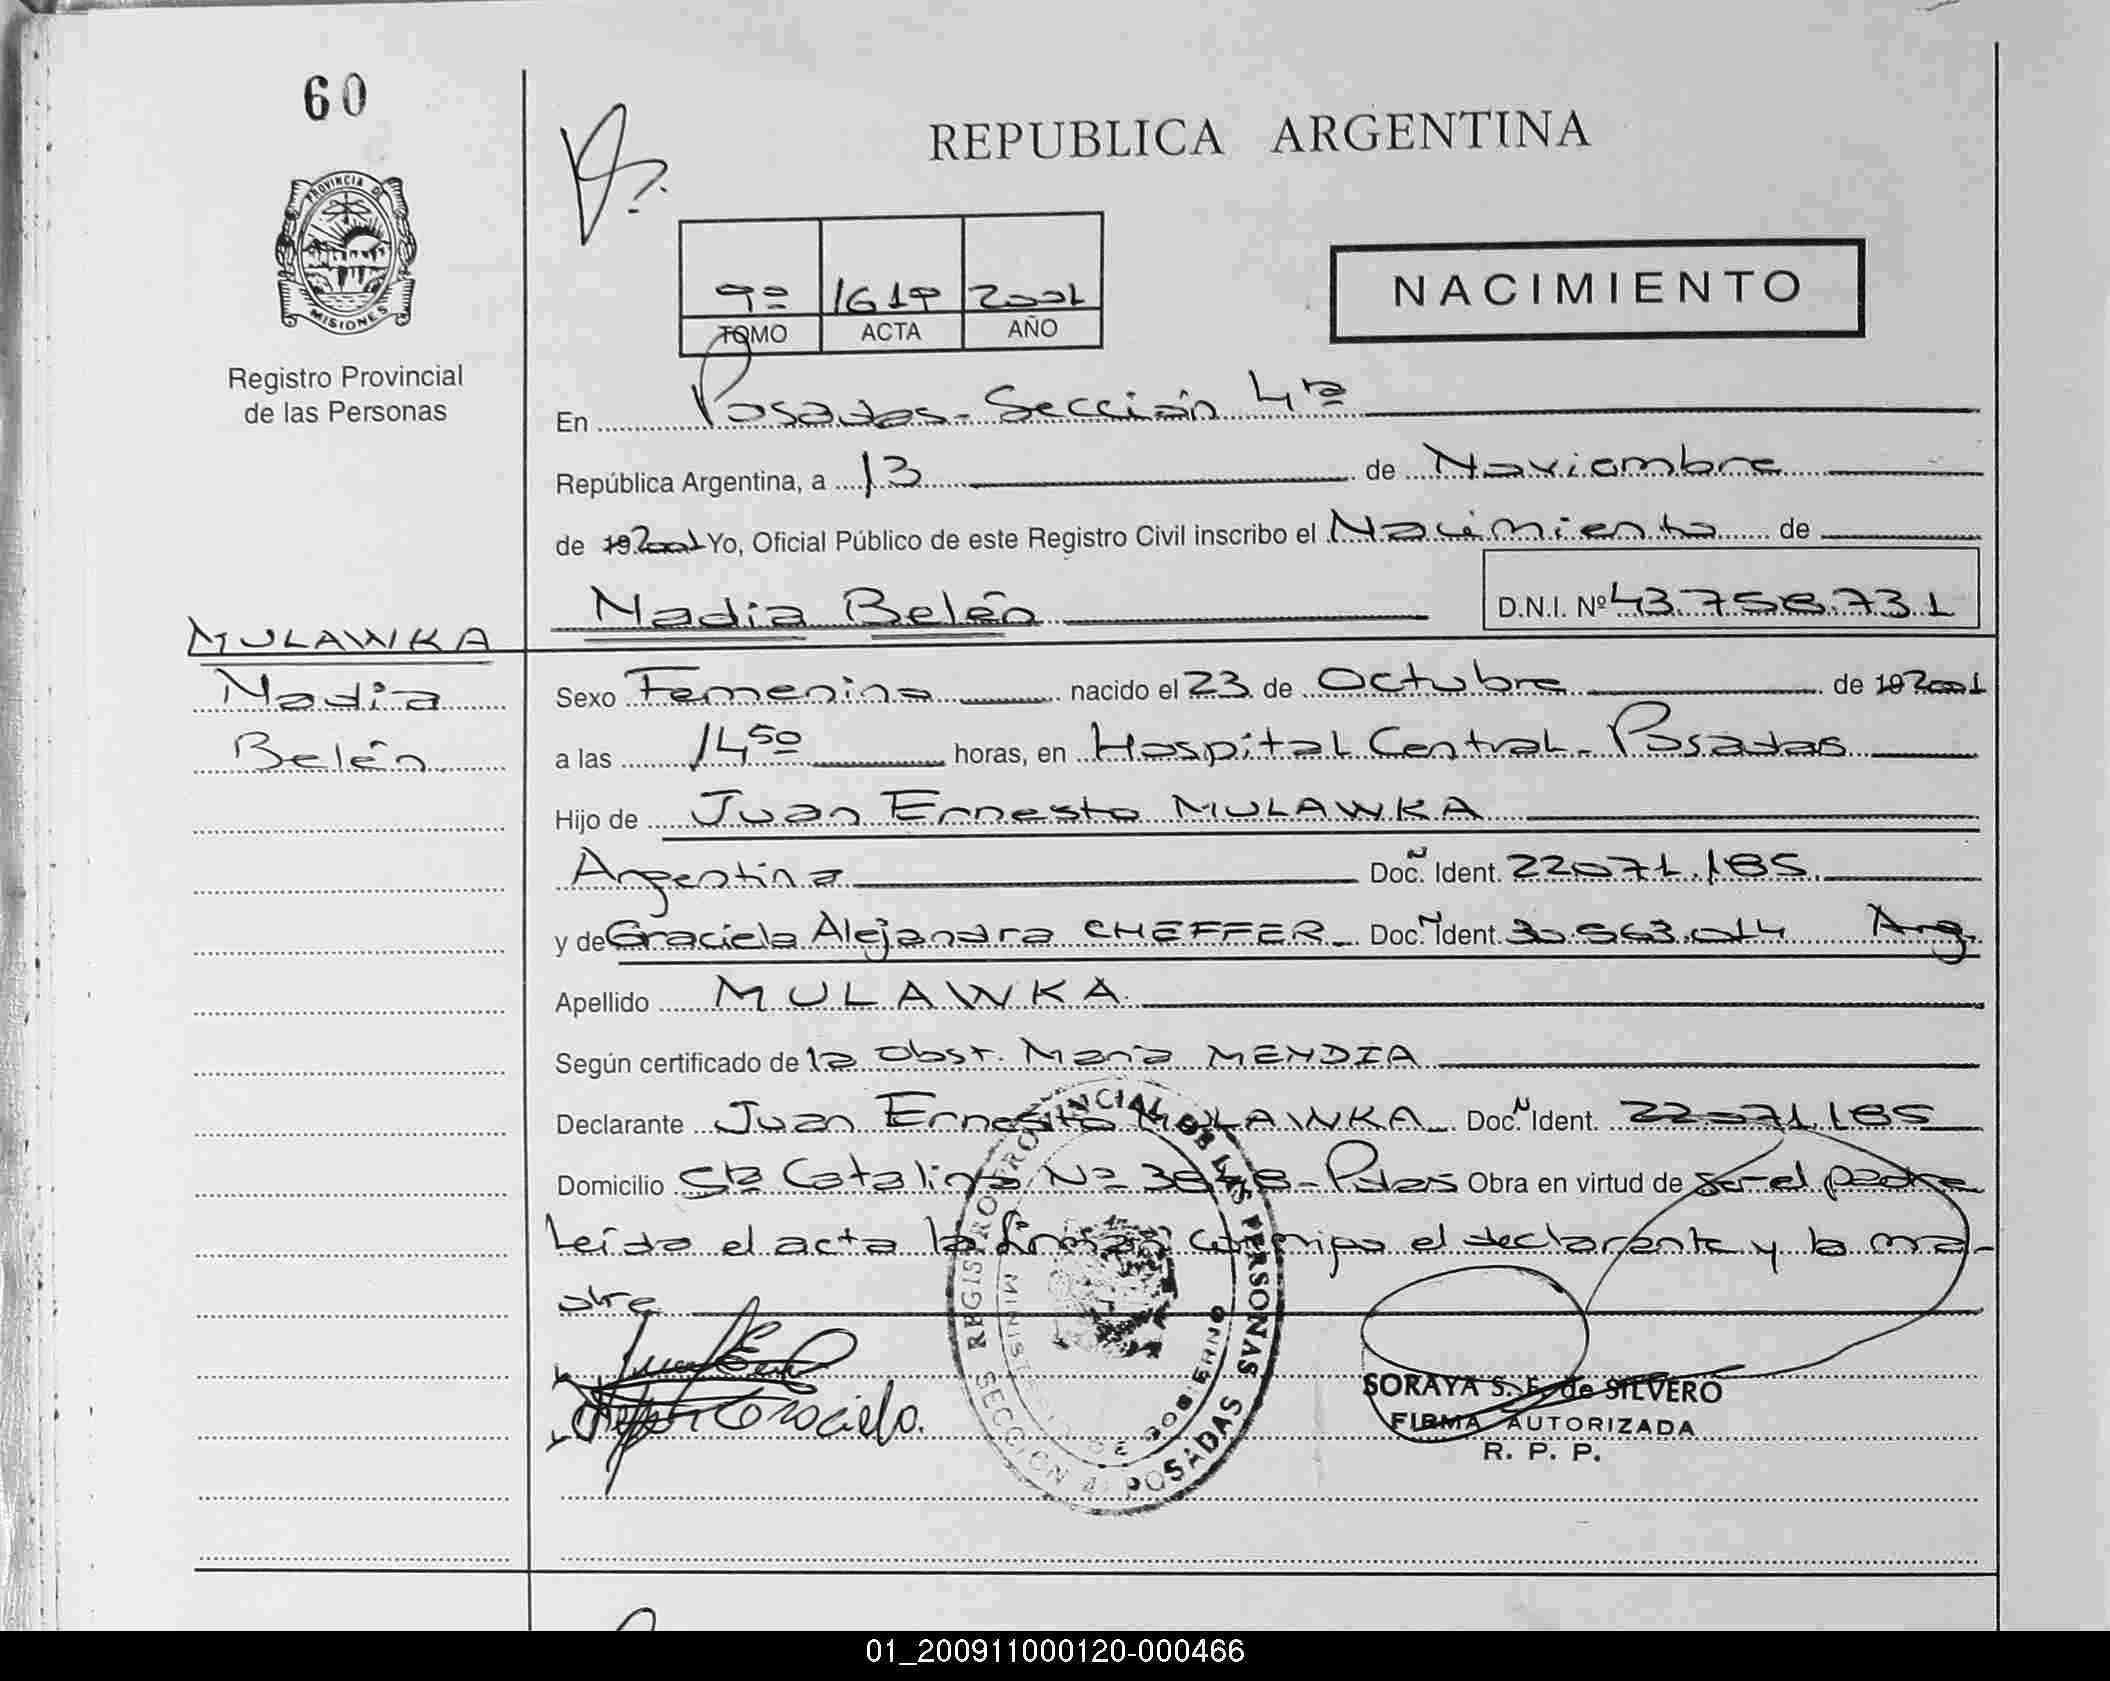 60
REPUBLICA ARGENTINA
PROVINCIA DE MISIONES
9º 1619 2001
TOMO ACTA AÑO
NACIMIENTO
Registro Provincial
de las Personas
En Posadas - Sección 4ta
República Argentina, a 13 de Noviembre
de 19 2001 Yo, Oficial Público de este Registro Civil inscribo el Nacimiento de
Nadia Belén D.N.I. Nº 43.756.731
MULAWKA
Nadia
Belén
Sexo Femenino nacido el 23 de Octubre de 19 2001
a las 14 50 horas, en Hospital Central - Posadas
Hijo de Juan Ernesto MULAWKA
Argentina Doc. Ident. 22.071.185.
y de Graciela Alejandra CHEFFER - Doc. Ident. 30.563.014 Arg.
Apellido MULAWKA
Según certificado de la Obst. María MENDIA
Declarante Juan Ernesto MULAWKA - Doc. Ident. 22.071.185
Domicilio Sta Catalina Nº 3848 - Pdas Obra en virtud de ser el padre
Leída el acta la firman conmigo el declarante y la ma-
dre
REGISTRO PROVINCIAL DE LAS PERSONAS
MINISTERIO DE GOBIERNO
SECCION 4ª POSADAS
SORAYA S. F. de SILVERO
FIRMA AUTORIZADA
R. P. P.
01_200911000120-000466